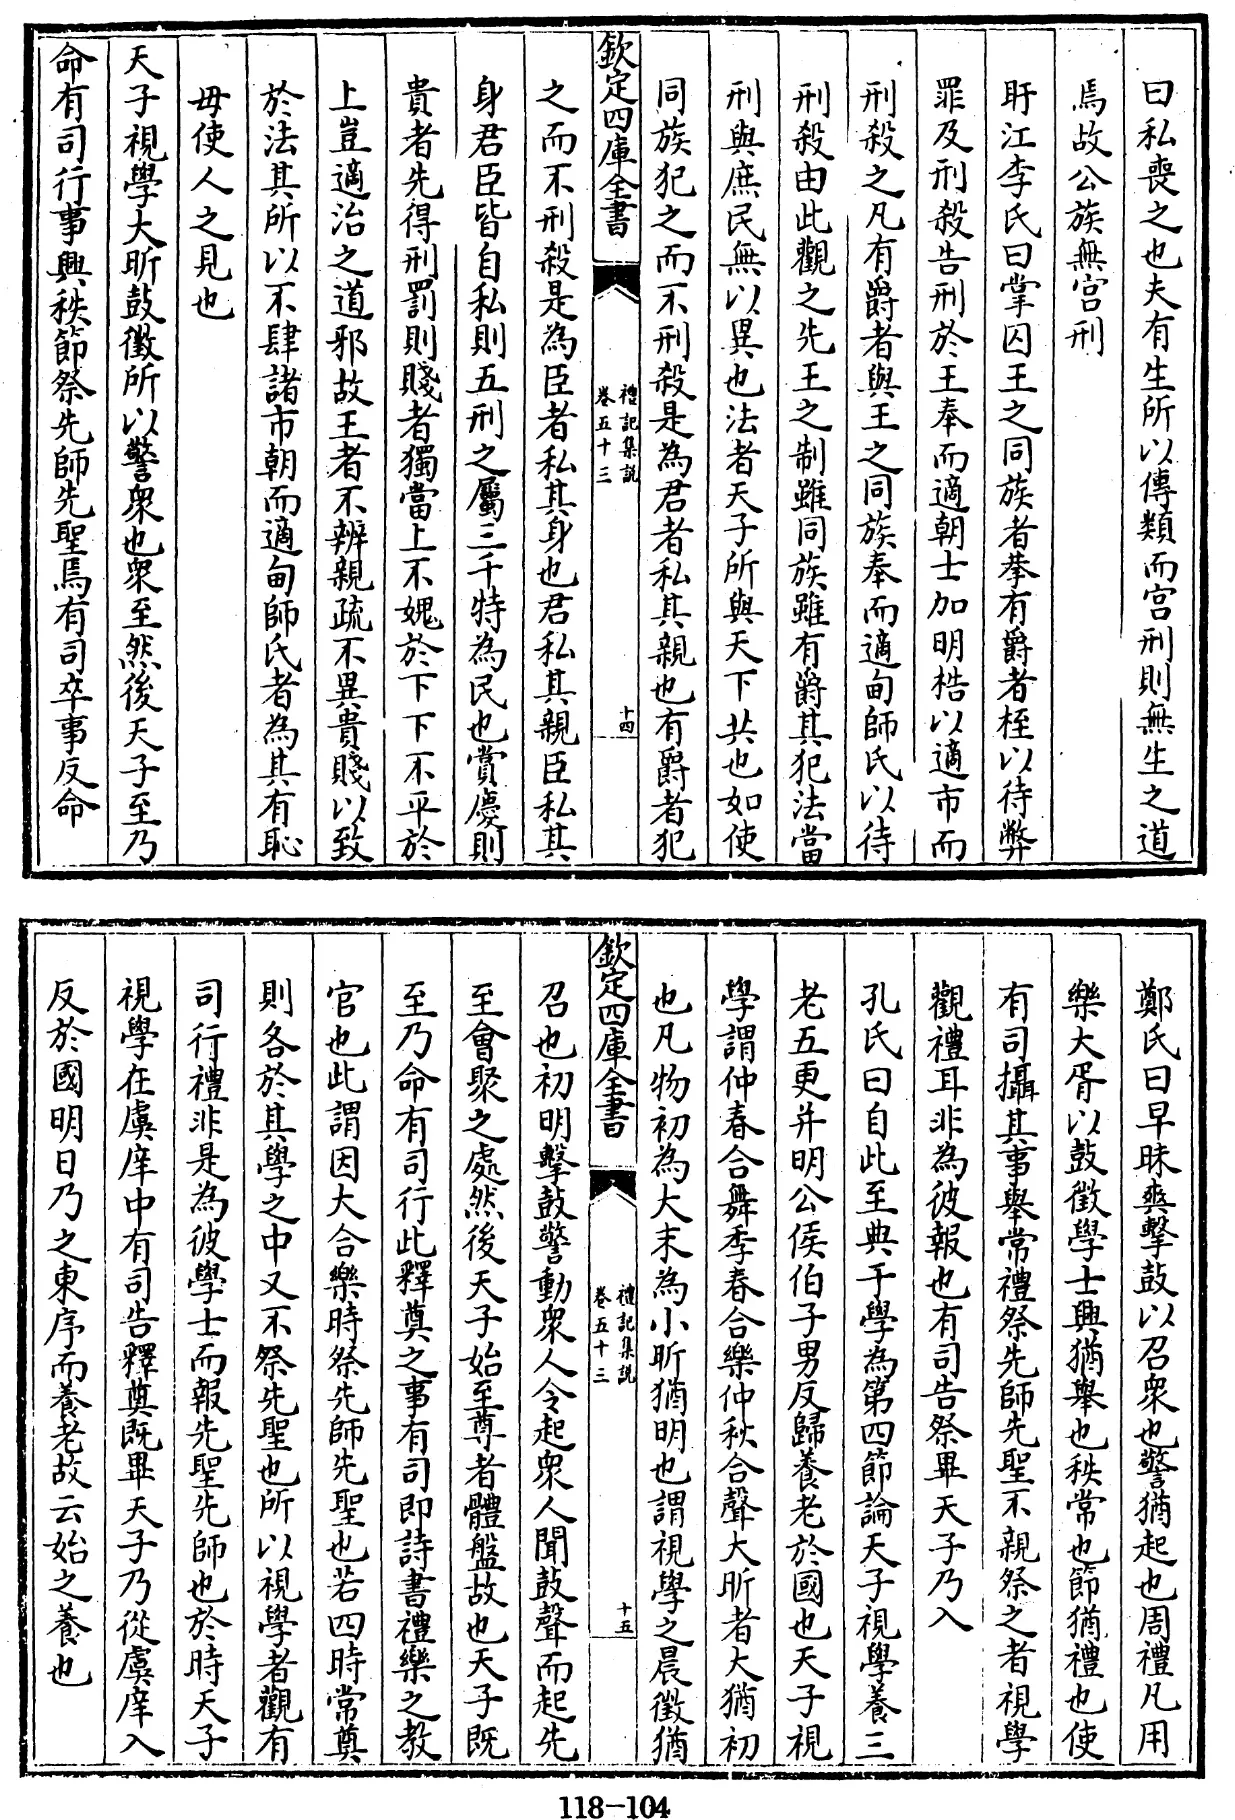 曰私喪之也夫有生所以傳類而宫刑則無生之道
焉故公族無宫刑
盱江李氏曰掌囚王之同族者拲有爵者桎以待弊
罪及刑殺告刑於王奉而適朝士加明梏以適市而
刑殺之凡有爵者與王之同族奉而適甸師氏以待
刑殺由此觀之先王之制雖同族雖有爵其犯法當
刑與庶民無以異也法者天子所與天下共也如使
同族犯之而不刑殺是為君者私其親也有爵者犯
欽定四庫全書
禮記集說
卷五十三
十四
之而不刑殺是為臣者私其身也君私其親臣私其
身君臣皆自私則五刑之屬三千特為民也賞慶則
貴者先得刑罰則賤者獨當上不媿於下下不平於
上豈適治之道邪故王者不辨親疏不異貴賤以致
於法其所以不肆諸市朝而適甸師氏者為其有恥
毋使人之見也
天子視學大昕鼓徵所以警衆也衆至然後天子至乃
命有司行事興秩節祭先師先聖焉有司卒事反命
鄭氏曰早昧爽擊鼓以召衆也警猶起也周禮凡用
樂大胥以鼓徵學士興猶舉也秩常也節猶禮也使
有司攝其事舉常禮祭先師先聖不親祭之者視學
觀禮耳非為彼報也有司告祭畢天子乃入
孔氏曰自此至典于學為第四節論天子視學養三
老五更并明公侯伯子男反歸養老於國也天子視
學謂仲春合舞季春合樂仲秋合聲大昕者大猶初
也凡物初為大末為小昕猶明也謂視學之晨徵猶
欽定四庫全書
禮記集說
卷五十三
十五
召也初明擊鼓警動衆人令起衆人聞鼓聲而起先
至會聚之處然後天子始至尊者體盤故也天子既
至乃命有司行此釋奠之事有司即詩書禮樂之教
官也此謂因大合樂時祭先師先聖也若四時常奠
則各於其學之中又不祭先聖也所以視學者觀有
司行禮非是為彼學士而報先聖先師也於時天子
視學在虞庠中有司告釋奠既畢天子乃從虞庠入
反於國明日乃之東序而養老故云始之養也
118-104